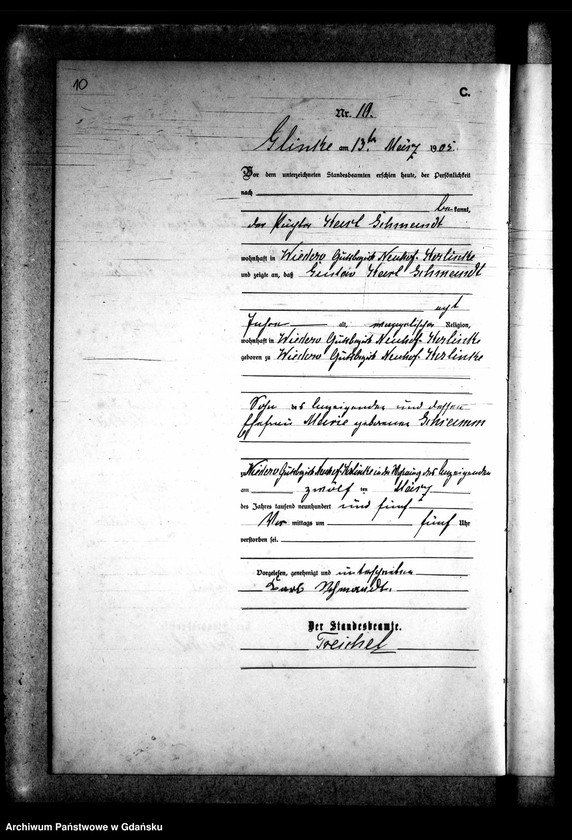 10
C.
Nr. 10.
Glinke am 13ten März 1905.
Vor dem unterzeichneten Standesbeamten erschien heute, der Persönlichkeit
nach
be kannt,
der Pächter Karl Schmandt
wohnhaft in Wiedero Gutsbezirk Neuhof-Kerlinke
und zeigte an, daß Gustav Karl Schmandt
acht
Jahre alt, evangelischer Religion,
wohnhaft in Wiedero Gutsbezirk Neuhof-Kerlinke
geboren zu Wiedero Gutsbezirk Neuhof-Kerlinke
Sohn des Anzeigenden und dessen
Ehefrau Marie geborenen
zu Wiedero Gutsbezirk Neuhof-Kerlinke in der Wohnung des Anzeigenden
am zwölf ten März
des Jahres tausend neunhundert und fünf
Vor mittags um fünf Uhr
verstorben sei.
Vorgelesen, genehmigt und unterschrieben
Karl Schmandt.
Der Standesbeamte.
Treichel
Archiwum Państwowe w Gdańsku